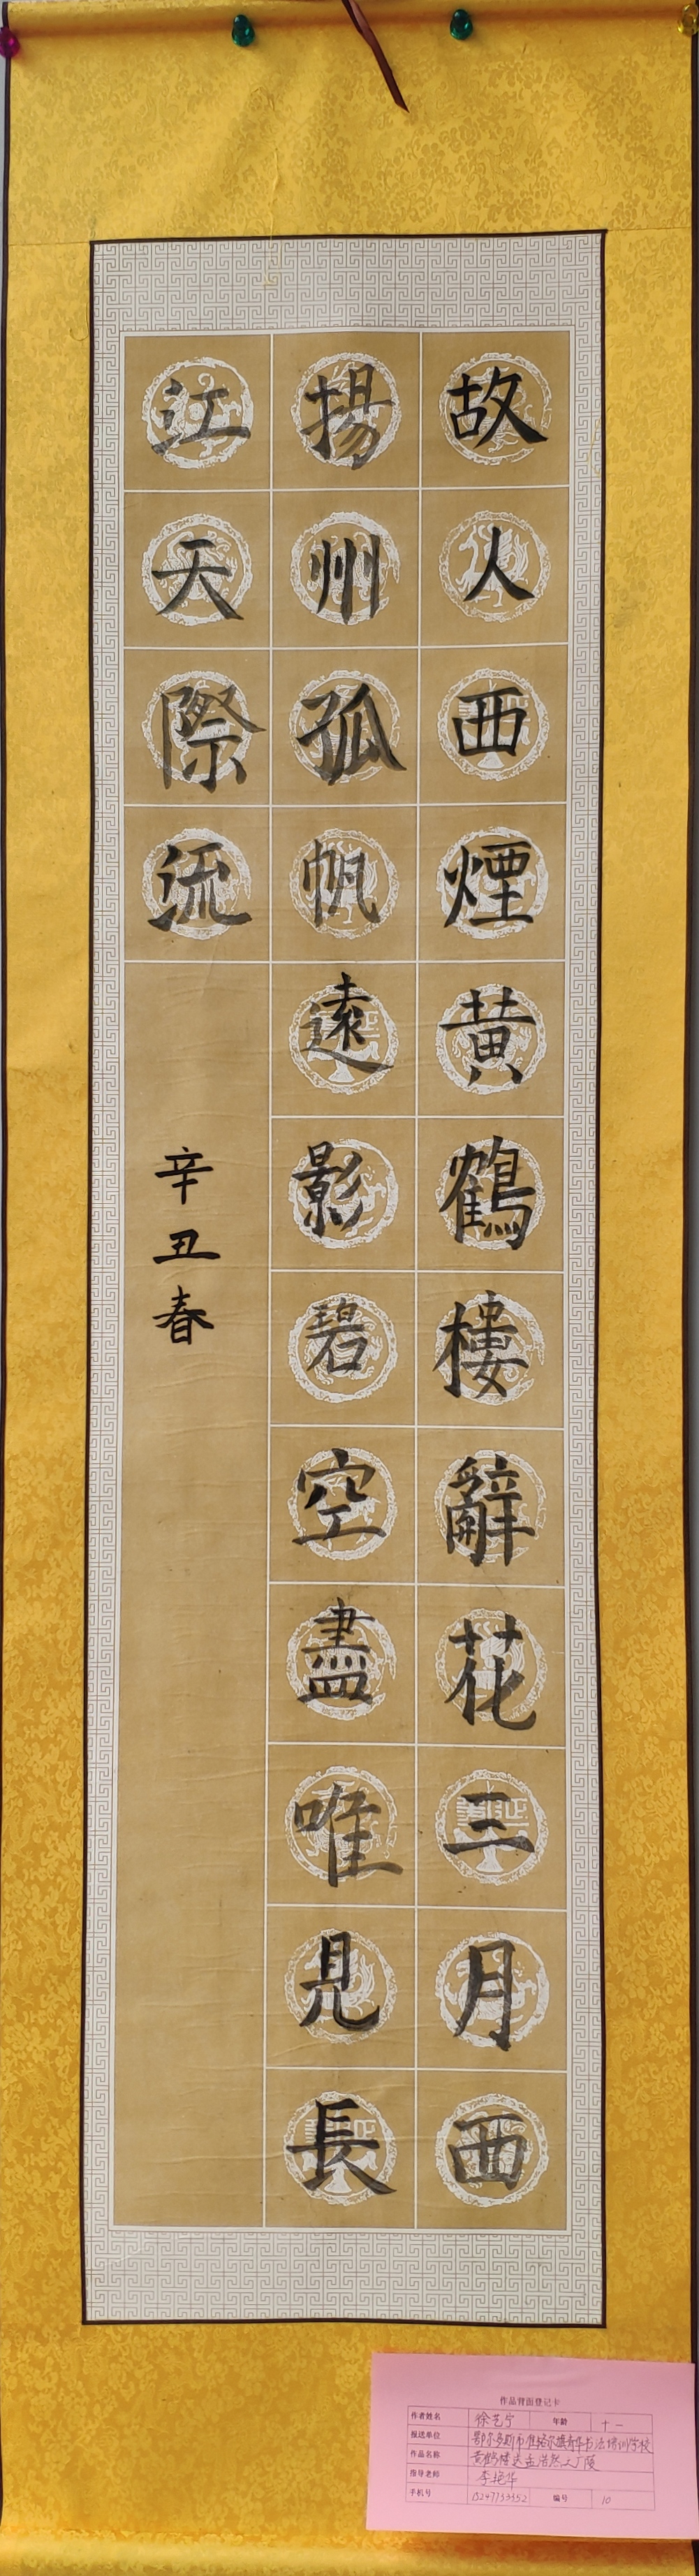 故人西煙黄鶴樓辭花三月西
揚州孤帆遠影碧空盡唯見長
江天際流
辛丑春
作品背面登记卡
作者姓名 徐艺宁 年龄 十一
报送单位 鄂尔多斯市准格尔旗华书法培训学校
作品名称 黄鹤楼送孟浩然之广陵
指导老师 李艳华
手机号 编号 10